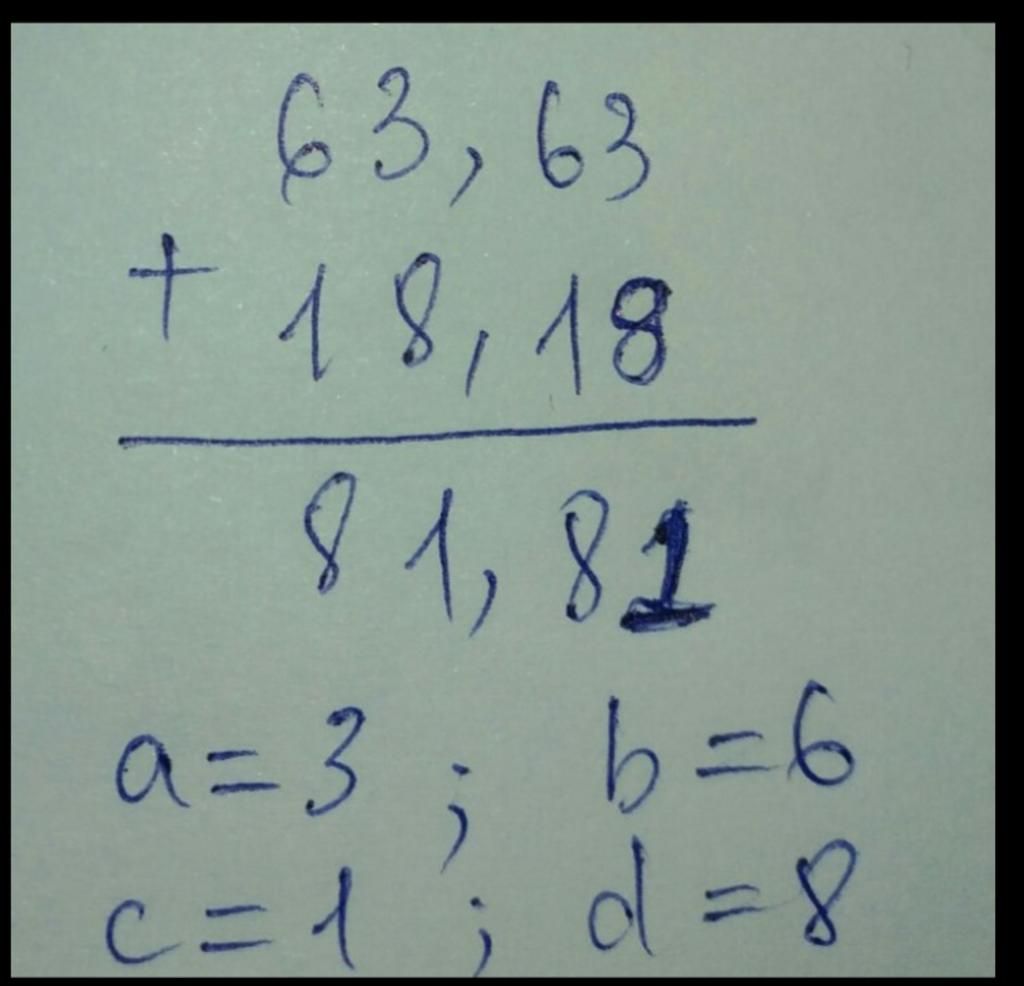 63,63
+ 18,18
81,81
a=3 ; b=6
c=1 ; d=8